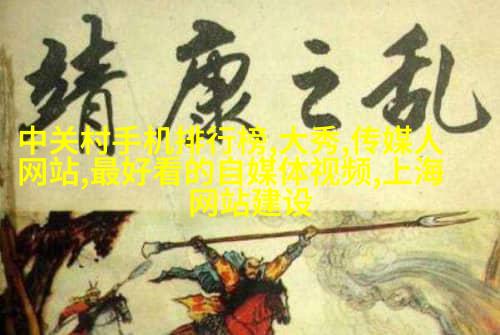 靖康之乱
中关村手机排行榜,大秀,传媒人
网站,最好看的自媒体视频,上海
网站建设